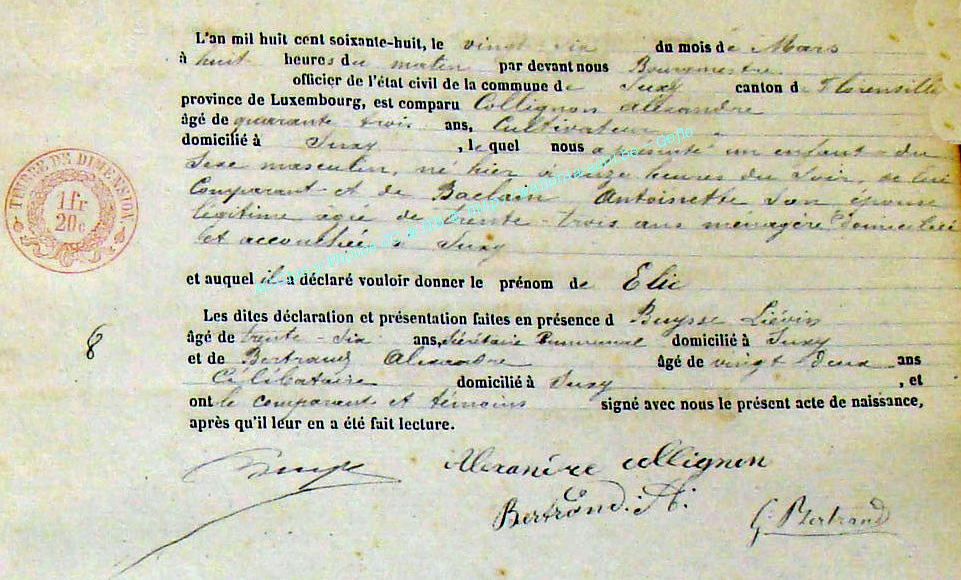 L'an mil huit cent soixante-huit, le vingt six du mois de Mars
à huit heures du matin par devant nous Bourgmestre
officier de l'état civil de la commune de Suxy canton de Florenville
province de Luxembourg, est comparu Collignon Alexandre
âgé de quarante-trois ans, Cultivateur
domicilié à Suxy, lequel nous a présenté un enfant du
Sexe masculin, né hier à onze heures du Soir, de lui
Comparant et de Antoinette son épouse
légitime âgée de trente-trois ans ménagère domiciliée
et accouchée à Suxy
TIMBRE DE DIMENSION
1 fr
20 c
et auquel il a déclaré vouloir donner le prénom de Elie
Les dites déclaration et présentation faites en présence d Buysse Liévin
âgé de trente-six ans, Sécrétaire Communal domicilié à Suxy
8
et de Bertrand Alexandre âgé de vingt-deux ans
Célibataire domicilié à Suxy, et
ont le comparant et témoins signé avec nous le présent acte de naissance,
après qu'il leur en a été fait lecture.
Alexandre Collignon
Bertrand. A.
G. Bertrand